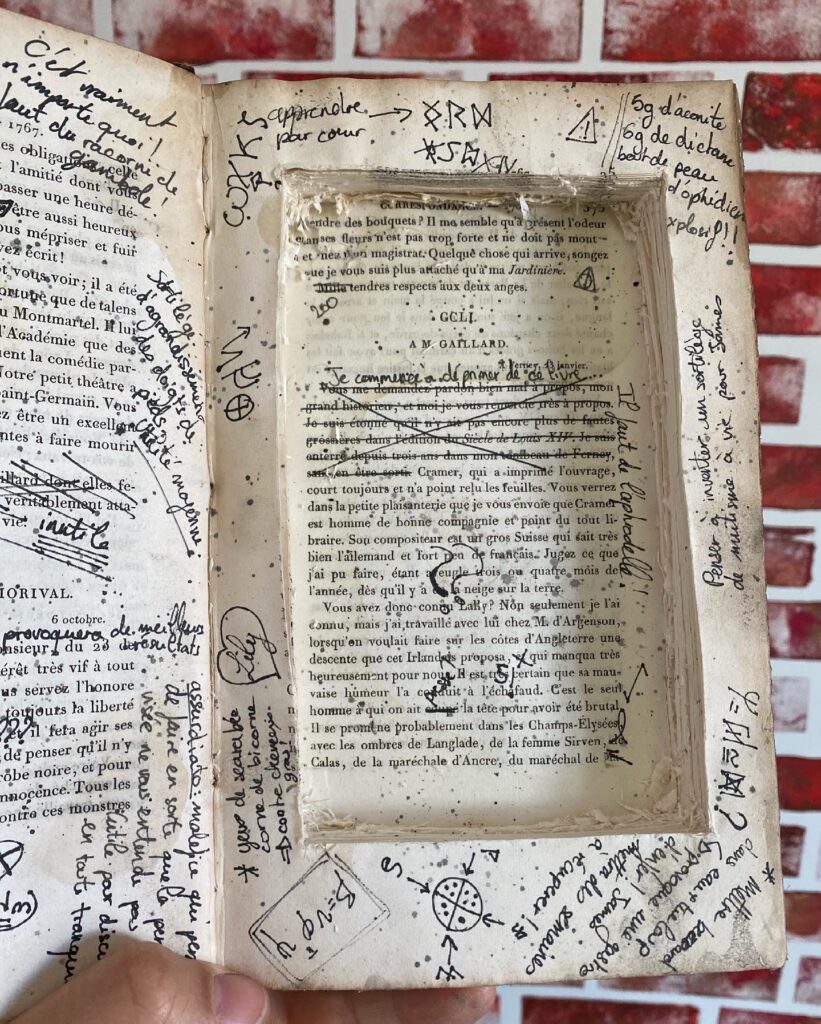 C'est vraiment
n'importe quoi !
1767.
l'amitié dont vous
passer une heure dé-
être aussi heureux
ous mépriser et fuir
vez écrit !
t vous voir ; il a été
ortune que de talens
u Montmartel. Il lui
l'Académie que des
uent la comédie par-
Notre petit théâtre a
Saint-Germain. Vous
ez être un excellent
ntes à faire mourir
illard dont elles fe-
veritablement atta-
vie !
inutile
IORIVAL.
6 octobre.
provoquera de meilleurs
résultats
onsieur, du 23 de
érêt très vif à tout
us servez l'honore
toujours la liberté
il fera agir ses
de penser qu'il n'y
obe noire, et pour
nnocence. Tous les
ontre ces monstres
Sortilège
d'agrandissement
des doigts de
pieds
assurdiato : maléfice qui per
de faire en sorte que la per
visée ne vous entende pas
Utile pour discu
en toute tranqui
apprendre
par cœur
5g d'aconite
6g de dictame
bout de peau
d'ophidien
explosif !!
CORRESPONDANCE.
375
tendre des bouquets ? Il me semble qu'à présent l'odeur
de mes fleurs n'est pas trop forte et ne doit pas mont-
au nez d'un magistrat. Quelque chose qui arrive, songez
que je vous suis plus attaché qu'à ma Jardinière.
Mille tendres respects aux deux anges.
200
CCLI.
A M. GAILLARD.
Ferney, 13 janvier.
Je commence à déprimer de ce livre...
Vous me demandez pardon bien mal à propos, mon
grand historien, et moi je vous remercie très à propos.
Je suis étonné qu'il n'y ait pas encore plus de fautes
grossières dans l'édition du Siècle de Louis XIV. Je suis
enterré depuis trois ans dans mon tombeau de Ferney,
sans en être sorti. Cramer, qui a imprimé l'ouvrage,
court toujours et n'a point relu les feuilles. Vous verrez
dans la petite plaisanterie que je vous envoie que Cramer
est homme de bonne compagnie et point du tout li-
braire. Son compositeur est un gros Suisse qui sait très
bien l'allemand et fort peu de français. Jugez ce que
j'ai pu faire, étant aveugle trois ou quatre mois de
l'année, dès qu'il y a de la neige sur la terre.
Vous avez donc connu Laky ? Non seulement je l'ai
connu, mais j'ai travaillé avec lui chez M. d'Argenson,
lorsqu'on voulait faire sur les côtes d'Angleterre une
descente que cet Irlandais proposa, et qui manqua très
heureusement pour nous. Il est très certain que sa mau-
vaise humeur l'a conduit à l'échafaud. C'est le seul
homme à qui on ait coupé la tête pour avoir été brutal.
Il se promène probablement dans les Champs-Élysées
avec les ombres de Langlade, de la femme Sirven, de
Calas, de la maréchale d'Ancre, du maréchal de
Il faut de l'asphodèle !
Penser à inventer un sortilège
de mutisme à vie pour James
Lily
* yeux de scarabée
corne de bicorne
=> contre cheveux
gras !
* Mettre bezoard
dans
d'enfer ! James
mettra des semaines
à récupérer !